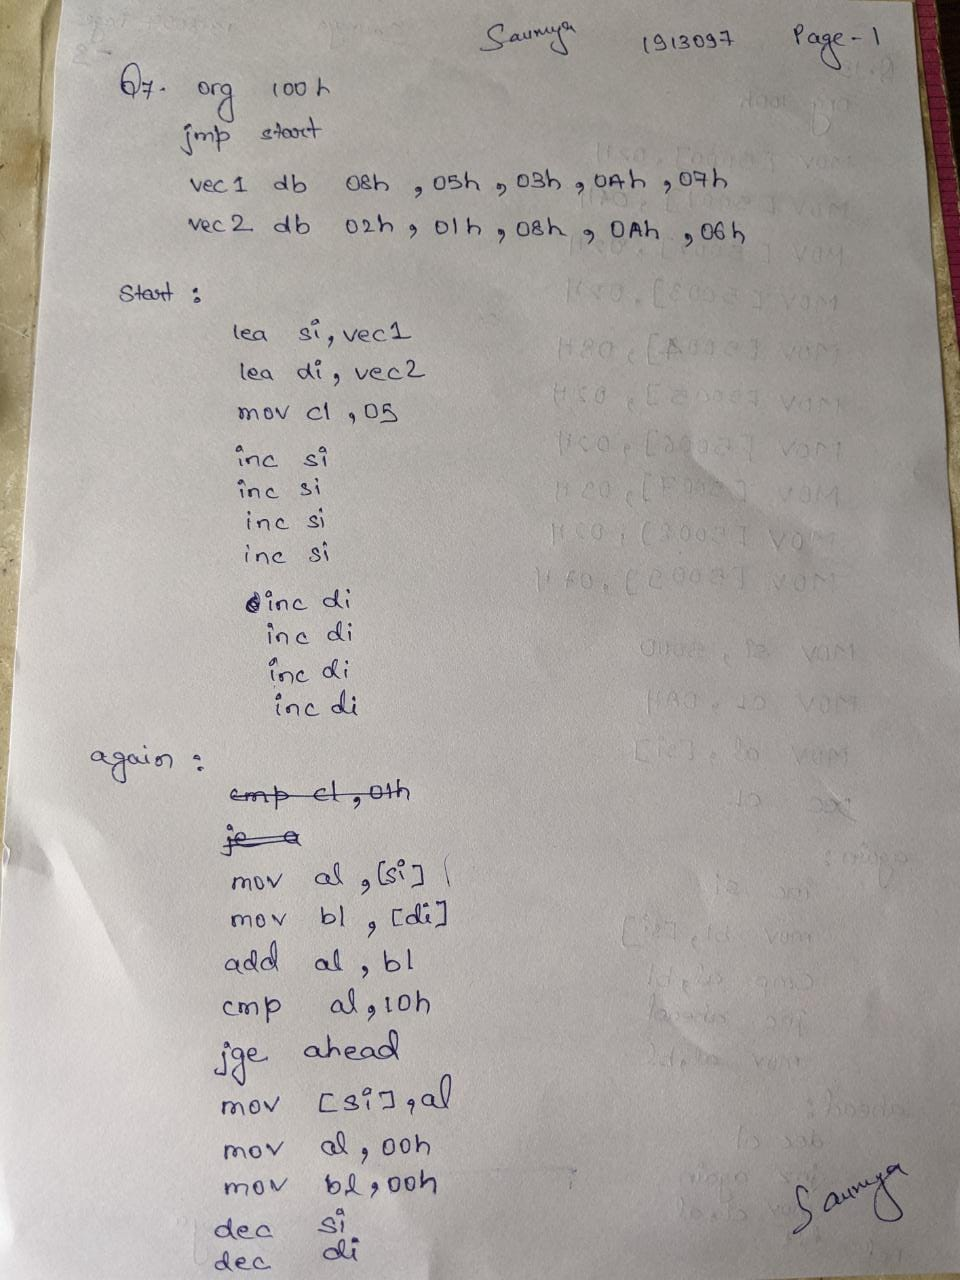 Saumya 1913097 Page-1
Q7. org 100h
jmp start
vec1 db 08h, 05h, 03h, 0Ah, 07h
vec2 db 02h, 01h, 08h, 0Ah, 06h
Start:
lea si, vec1
lea di, vec2
mov cl, 05
inc si
inc si
inc si
inc si
inc di
inc di
inc di
inc di
again:
cmp cl, 01h
je a
mov al, [si]
mov bl, [di]
add al, bl
cmp al, 10h
jge ahead
mov [si], al
mov al, 00h
mov bl, 00h
dec si
dec di
Saumya